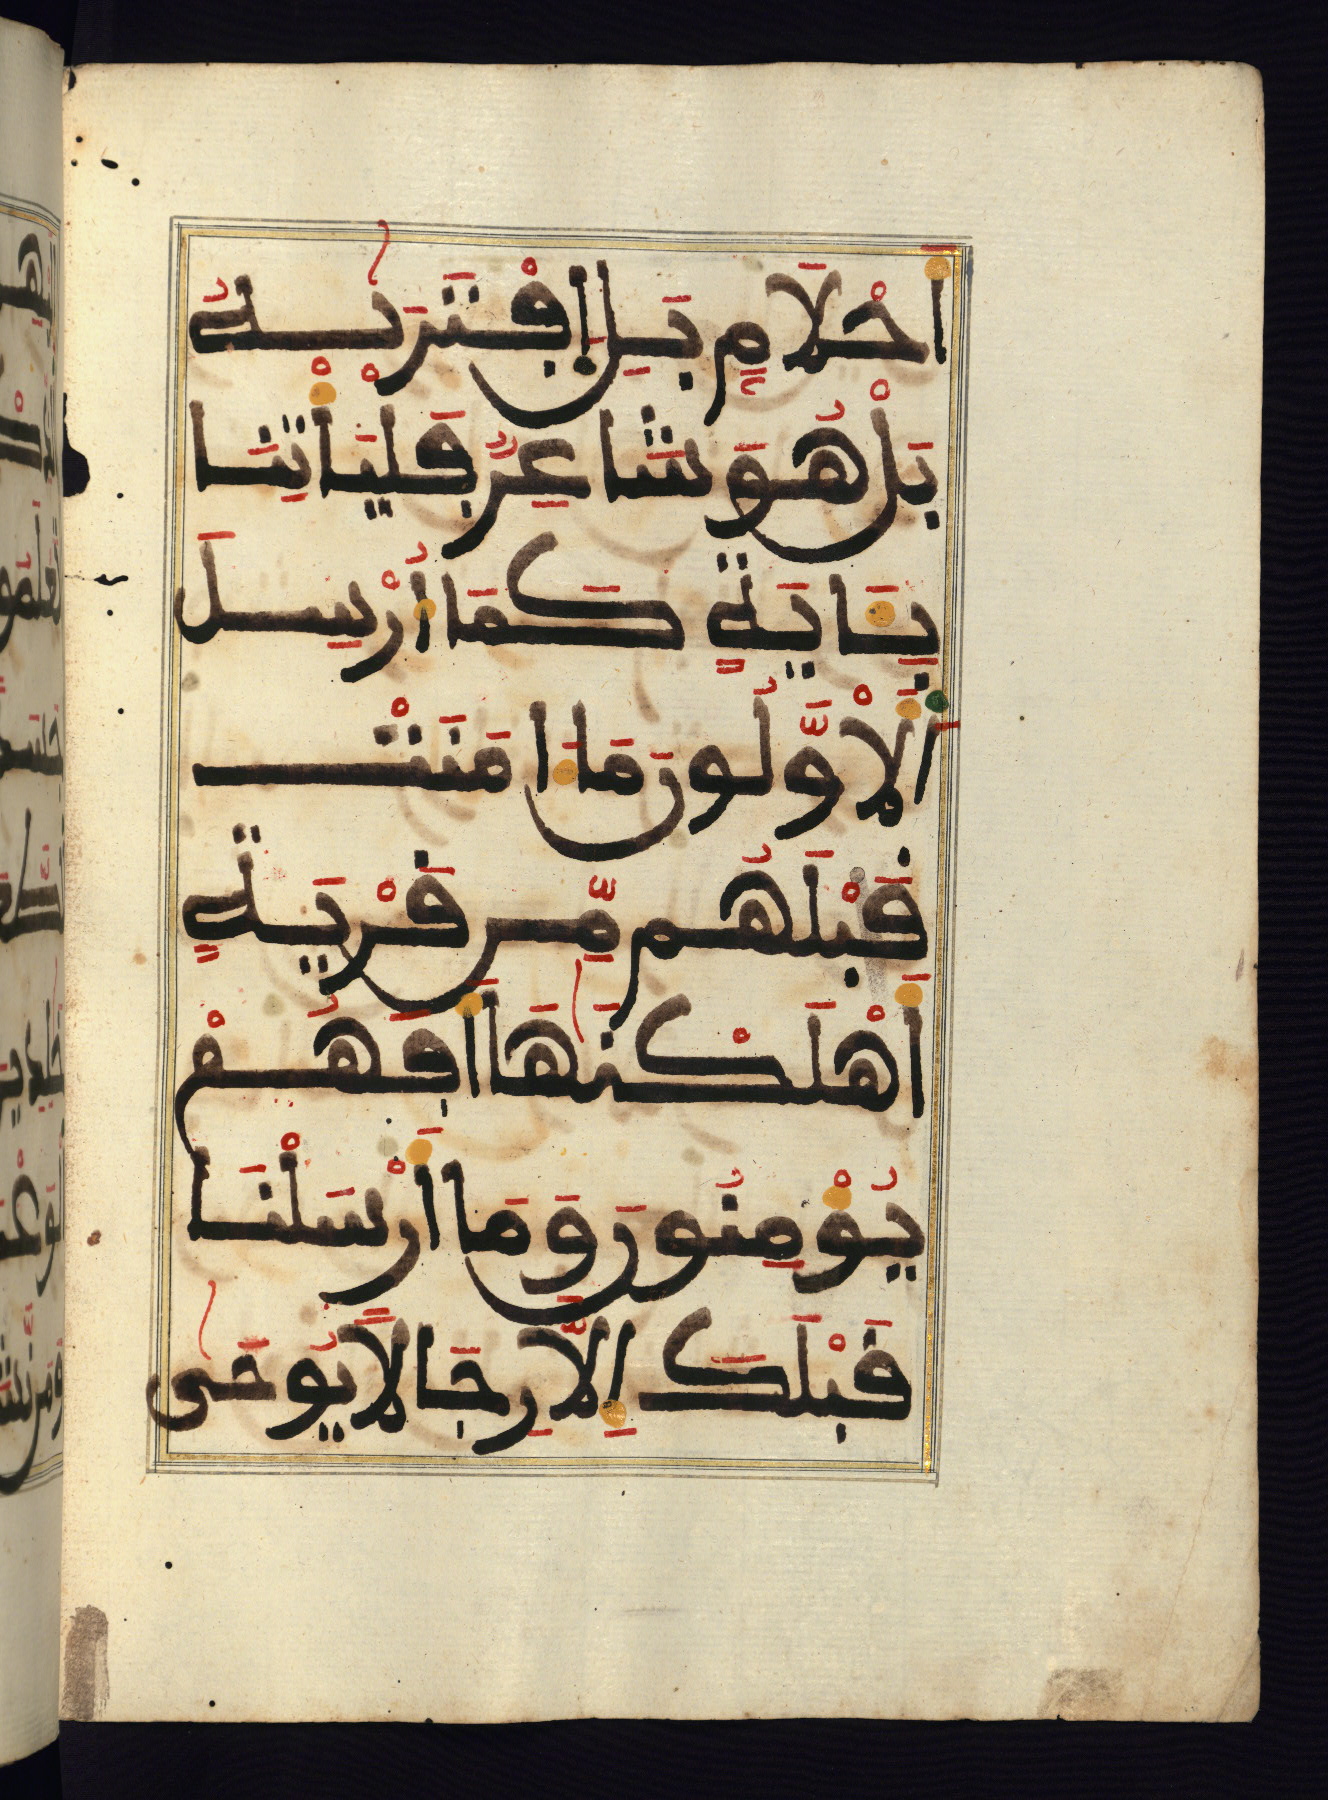 أَحْلَٰمٍۭ بَلِ اِفْتَرَىٰهُ
بَلْ هُوَ شَاعِرٌ فَلْيَأْتِنَا
بِـَٔايَةٍ كَمَا أُرْسِلَ
اَ۬لْأَوَّلُونَ مَا ءَامَنَتْ
قَبْلَهُم مِّن قَرْيَةٍ
أَهْلَكْنَٰهَا أَفَهُمْ
يُؤْمِنُونَ وَمَا أَرْسَلْنَا
قَبْلَكَ إِلَّا رِجَالًا يُوحَىٰ